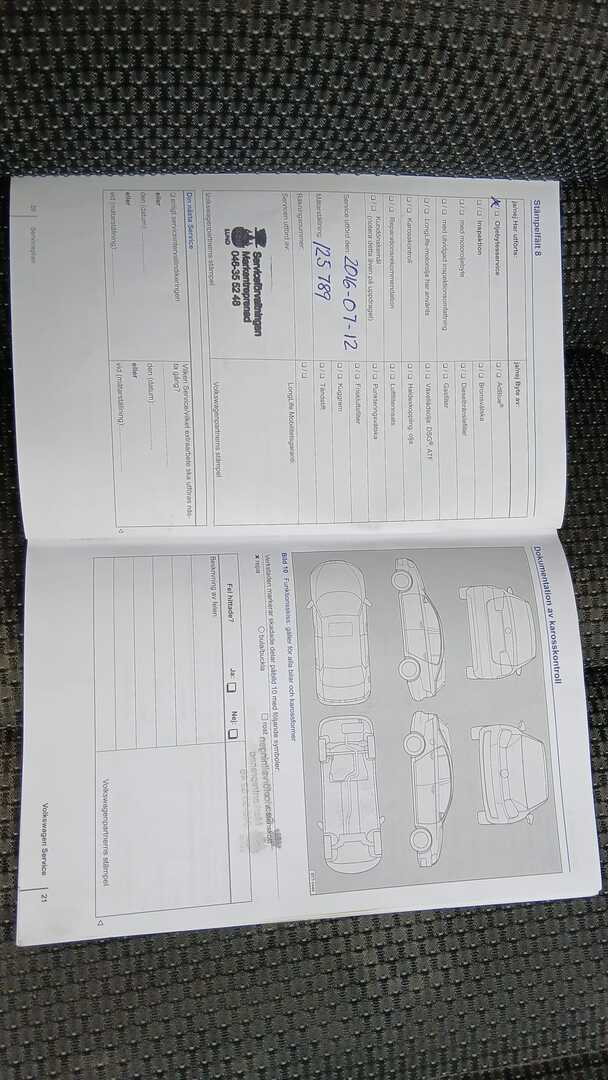 Stämpelfält 8
ja/nej Har utförts:
x ❏ Oljebytesservice
❏ / ❏ Inspektion
❏ / ❏ med motoroljebyte
❏ / ❏ med utvidgad inspektionsomfattning
❏ / ❏ LongLife-motorolja har använts
❏ / ❏ Karosskontroll
❏ / ❏ Reparationsrekommendation
❏ / ❏ Kundönskemål
(notera detta även på uppdraget)
Service utförd den: 2016-07-12
Mätarställning: 125 789
Räkningsnummer:
Servicen utförd av:
Serviceförvaltningen
Markentreprenad
046-35 52 48
LUND
Volkswagenpartnerns stämpel
ja/nej Byte av:
❏ / ❏ AdBlue®
❏ / ❏ Bromsvätska
❏ / ❏ Dieselbränslefilter
❏ / ❏ Gasfilter
❏ / ❏ Växellådsolja: DSG®, ATF
❏ / ❏ Haldexkoppling, olja
❏ / ❏ Luftfilterinsats
❏ / ❏ Punkteringsvätska
❏ / ❏ Friskluftsfilter
❏ / ❏ Kuggrem
❏ / ❏ Tändstift
❏ / ❏
LongLife Mobilitetsgaranti
Volkswagenpartnerns stämpel
Din nästa Service
❏ enligt serviceintervallindikeringen
eller
den (datum):
eller
vid (mätarställning):
Vilken Service/vilket extraarbete ska utföras näs-
ta gång?
den (datum):
eller
vid (mätarställning):
20 Serviceplan
Dokumentation av karosskontroll
Bild 10 Funktionsskiss: gäller för alla bilar och karossformer
Verkstaden markerar skadade delar på bild 10 med följande symboler:
x repa
○ bula/buckla
❏ rost
Fel hittade?
Ja: ❏
Nej: ❏
Beskrivning av felen:
Volkswagenpartnerns stämpel
Volkswagen Service 21